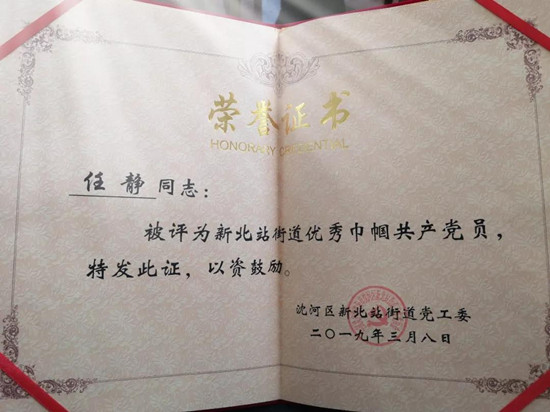 荣誉证书
HONORARY CREDENTIAL
任静同志：
被评为新北站街道优秀巾帼共产党员，
特发此证，以资鼓励。
沈河区新北站街道党工委
二〇一九年三月八日